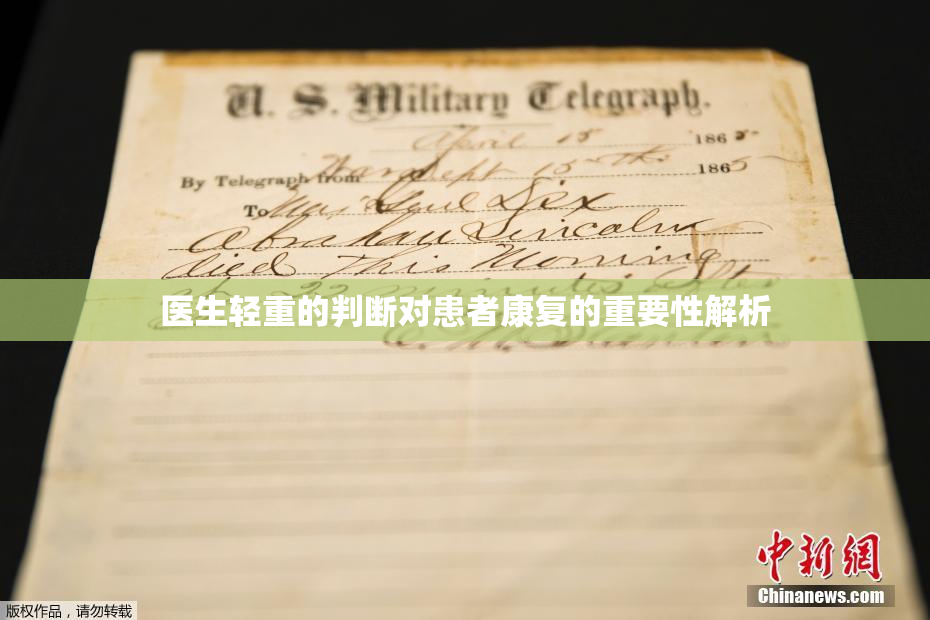 U. S. Military Telegraph.
April 15 1865
By Telegraph from War Dept 15th 1865
To Maj Genl Dix
Abraham Lincoln
died This Morning
at 22 minutes after
医生轻重的判断对患者康复的重要性解析
E. M. Stanton
中新网
Chinanews.com
版权作品，请勿转载